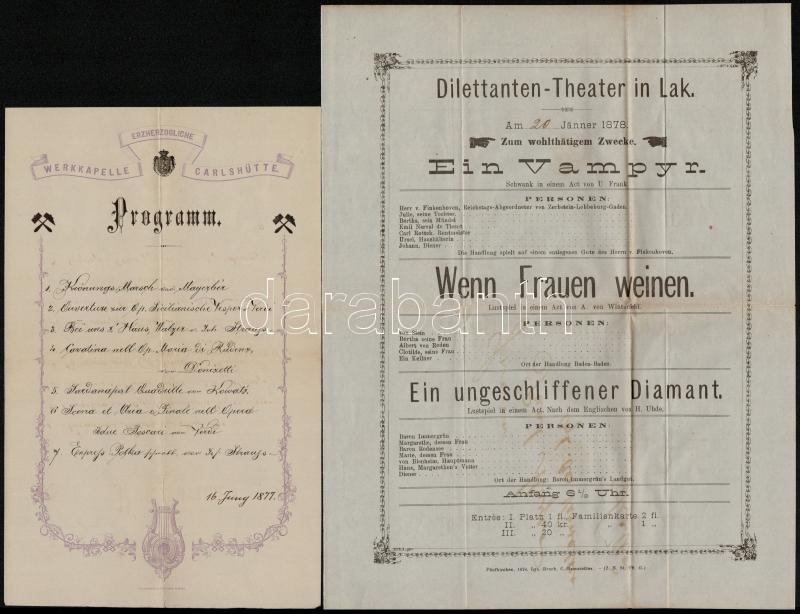 ERZHERZOGLICHE
WERKKAPELLE CARLSHÜTTE.
Programm.
1. Krönungs Marsch von Mayerbir
2. Ouverture zur Op. Sicilianische Vesper v Verdi
3. Bei uns z' Haus, Walzer v. Joh. Strauss
4. Cavatina nell Op. Maria di Rudenz
von Donizetti
5. Sardanapal Quadrille von Kowats
6 Scena ed Aria e Finale nell Opera
I due Foscari von Verdi
7. Express Polka schnell von Jos. Strauss
16 Juny 1877.
Dilettanten-Theater in Lak.
Am 20 Jänner 1878.
Zum wohlthätigem Zwecke.
Ein Vampyr.
Schwank in einem Act von U. Frank.
PERSONEN:
Herr v. Finkenhoven, Reichstags-Abgeordneter von Zerbstein-Lobbeburg-Gaden.
Julie, seine Tochter.
Bertha, sein Mündel
Emil Nerval de Tieset
Carl Rettich, Rentmeister
Ursel, Haushälterin
Johann, Diener
Die Handlung spielt auf einem entlegenen Gute des Herrn v. Finkenhoven.
Wenn Frauen weinen.
Lustspiel in einem Act von A. von Winterfeld.
PERSONEN:
Bertha seine Frau
Albert von Roden
Clotilde, seine Frau
Ein Kellner
Ort der Handlung Baden-Baden.
Ein ungeschliffener Diamant.
Lustspiel in einem Act. Nach dem Englischen von H. Uhde.
PERSONEN:
Baron Immergrün
Margarethe, dessen Frau
Baron Rodensee
Marie, dessen Frau
von Bienheim, Hauptmann
Hans, Margarethen's Vetter
Diener
Ort der Handlung: Baron Immergrün's Landgut.
Anfang 6½ Uhr.
Entrée: I. Platz 1 fl. Familienkarte 2 fl.
II. „ 40 kr. „ 1 „
III. „ 20 „
Fünfkirchen, 1878.
darabanth